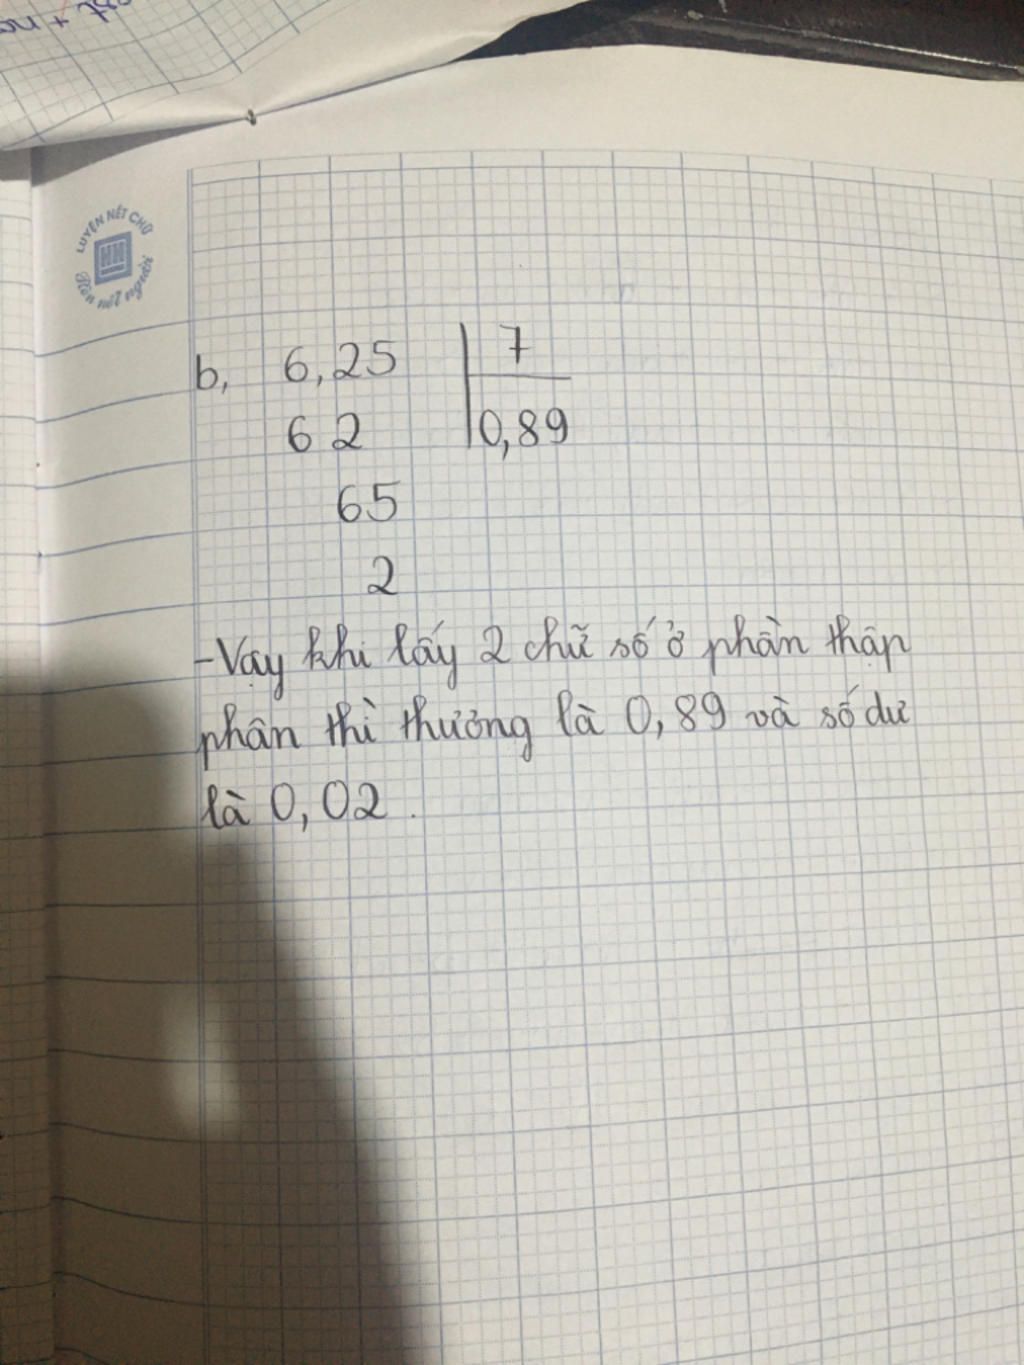 LUYỆN NÉT CHỮ
HN
Rèn nết người
b, 6,25 7
62 0,89
65
2
-Vậy khi lấy 2 chữ số ở phần thập
phân thì thương là 0,89 và số dư
là 0,02.